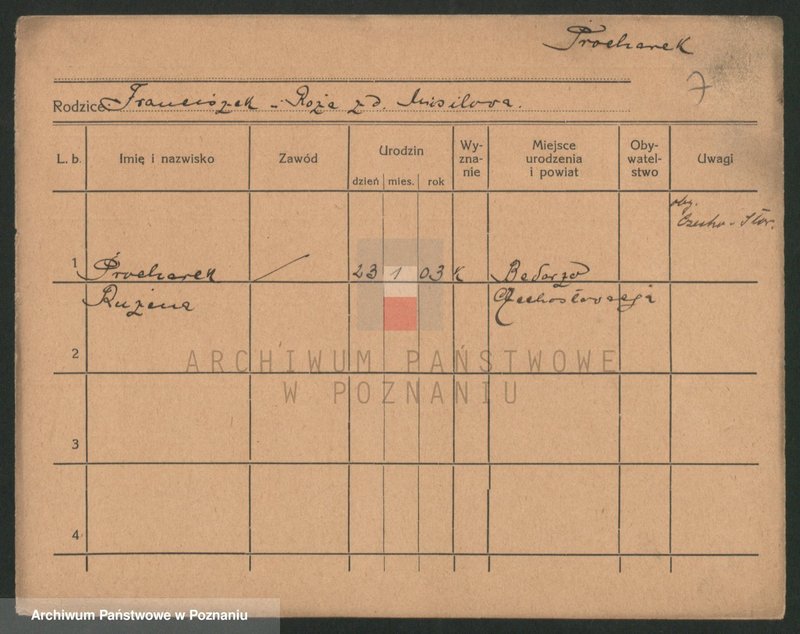 Procharek
7
Rodzice: Franciszek - Roża z d. Misilova.
L. b. Imię i nazwisko Zawód Urodzin dzień mies. rok Wyznanie Miejsce urodzenia i powiat Obywatelstwo Uwagi
oby.
Czecho-Słov.
1 Procharek / 23 1 03 k
Rużena Czechosłovacja
2
3
4
ARCHIWUM PAŃSTWOWE
W POZNANIU
Archiwum Państwowe w Poznaniu